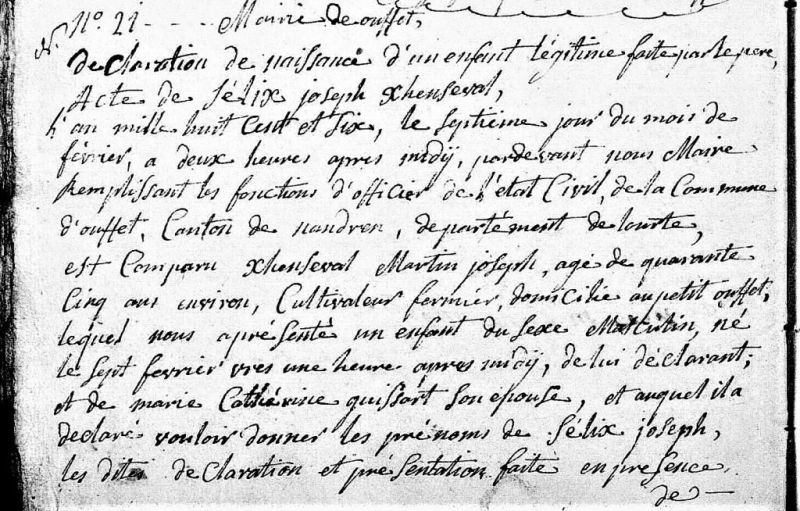 N.° 21 - - - Mairie de ouffet,
declaration de naissance d'un enfant légitime faite par le pere,
Acte de félix joseph xhenseval,
L'an mille huit Cent et Six, le septième jour du mois de
février, a deux heures apres midÿ, pardevant nous Maire
Remplissant les fonctions d'officier de l'état Civil, de la Commune
d'ouffet, Canton de nandren, departément de lourte,
est Comparu xhenseval Martin joseph, agé de quarante
Cinq ans environ, Cultivateur fermier, domicilié au petit ouffet,
lequel nous apresenté un enfant du sexe Masculin, né
le sept fevrier vres une heure apres midÿ, de lui déclarant;
et de marie Cathérine quissart son épouse, et auquel il a
declaré vouloir donner les prénoms de félix joseph,
les dites declaration et présentation faite en presence
de —